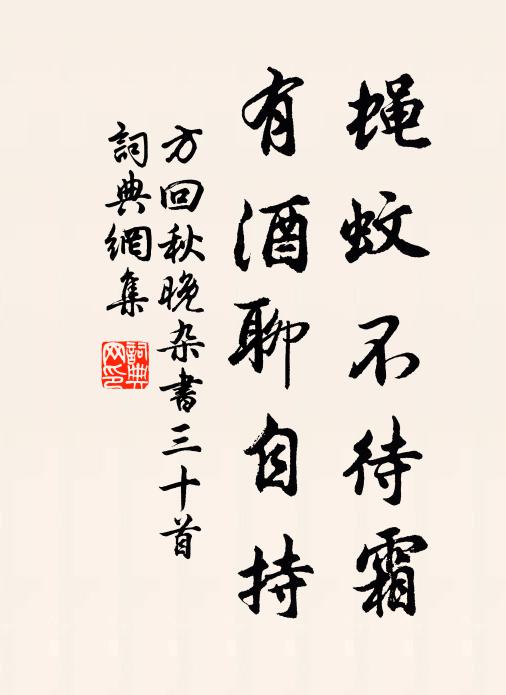 蝇蚊不待霜
有酒聊自持
方回秋晚杂书三十首
詞典網集
詞典
网印